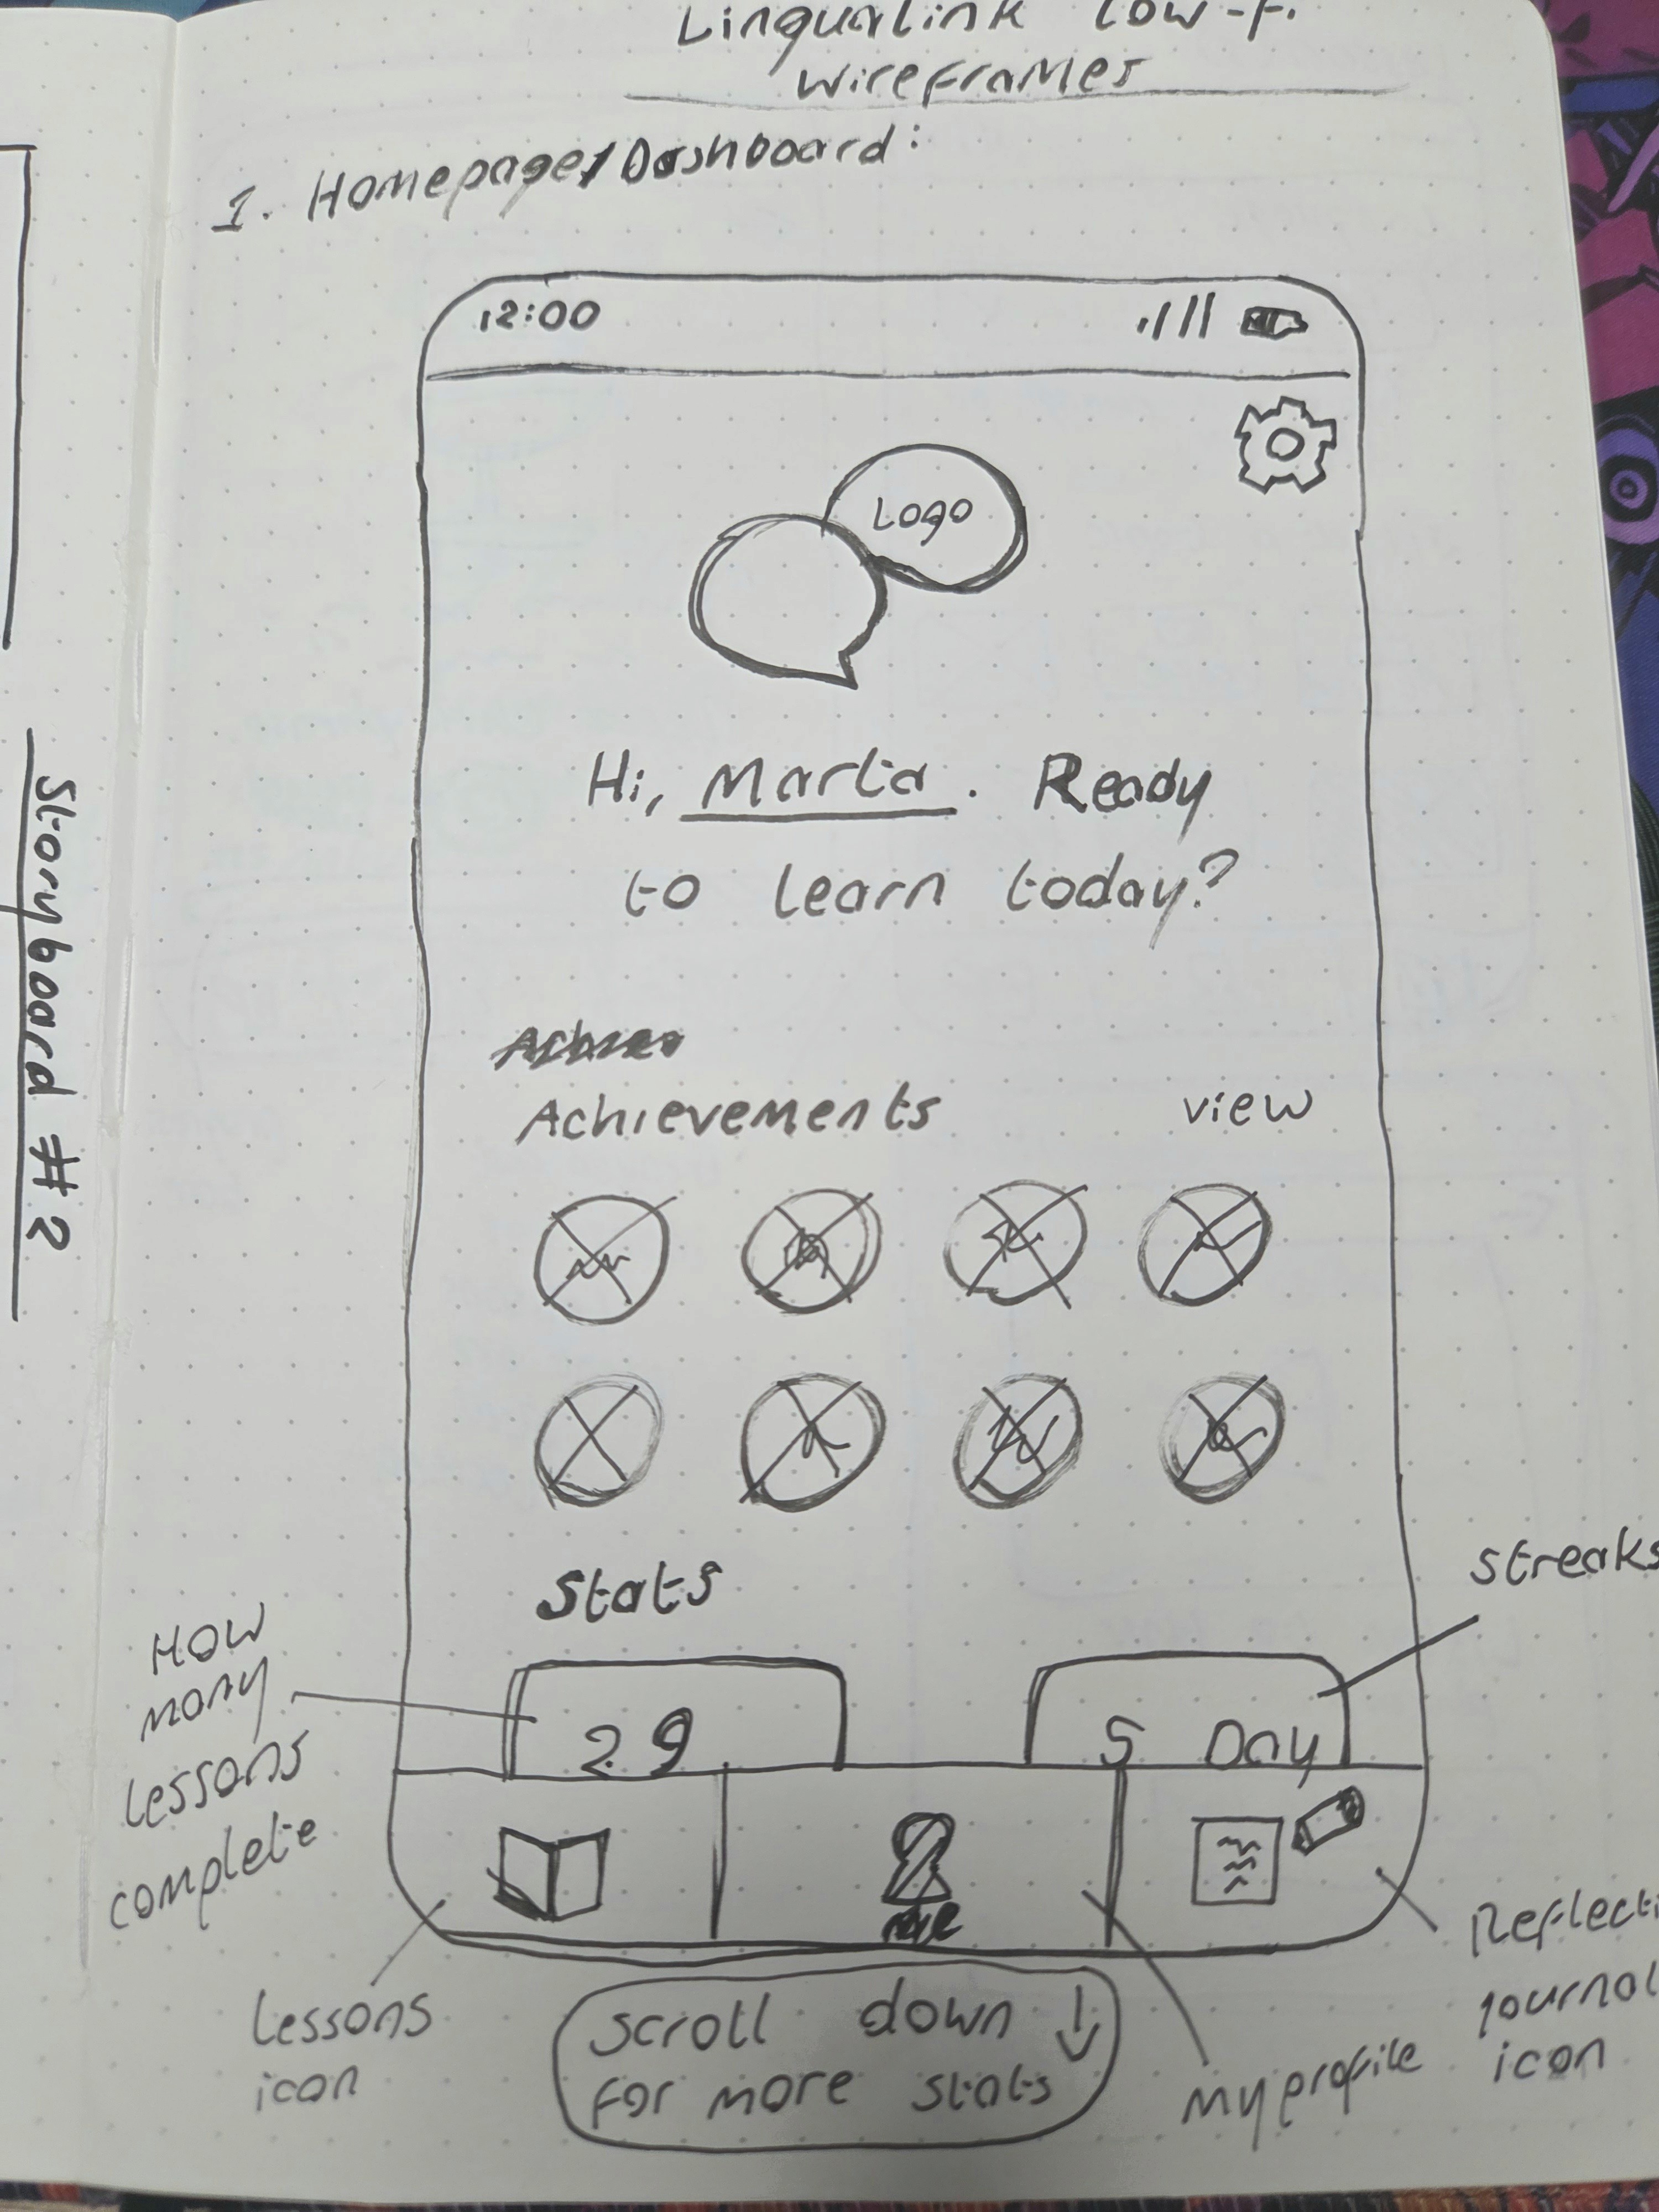 Lingualink Low-f.
Wireframes
1. Homepage/Dashboard:
12:00
Logo
Hi, Marta. Ready
to learn today?
Achievements view
Stats
streaks
How
many
lessons
complete
29
5 Day
Lessons
icon
scroll down ↓
for more stats
My profile
Reflecti
journal
icon
Storyboard #2